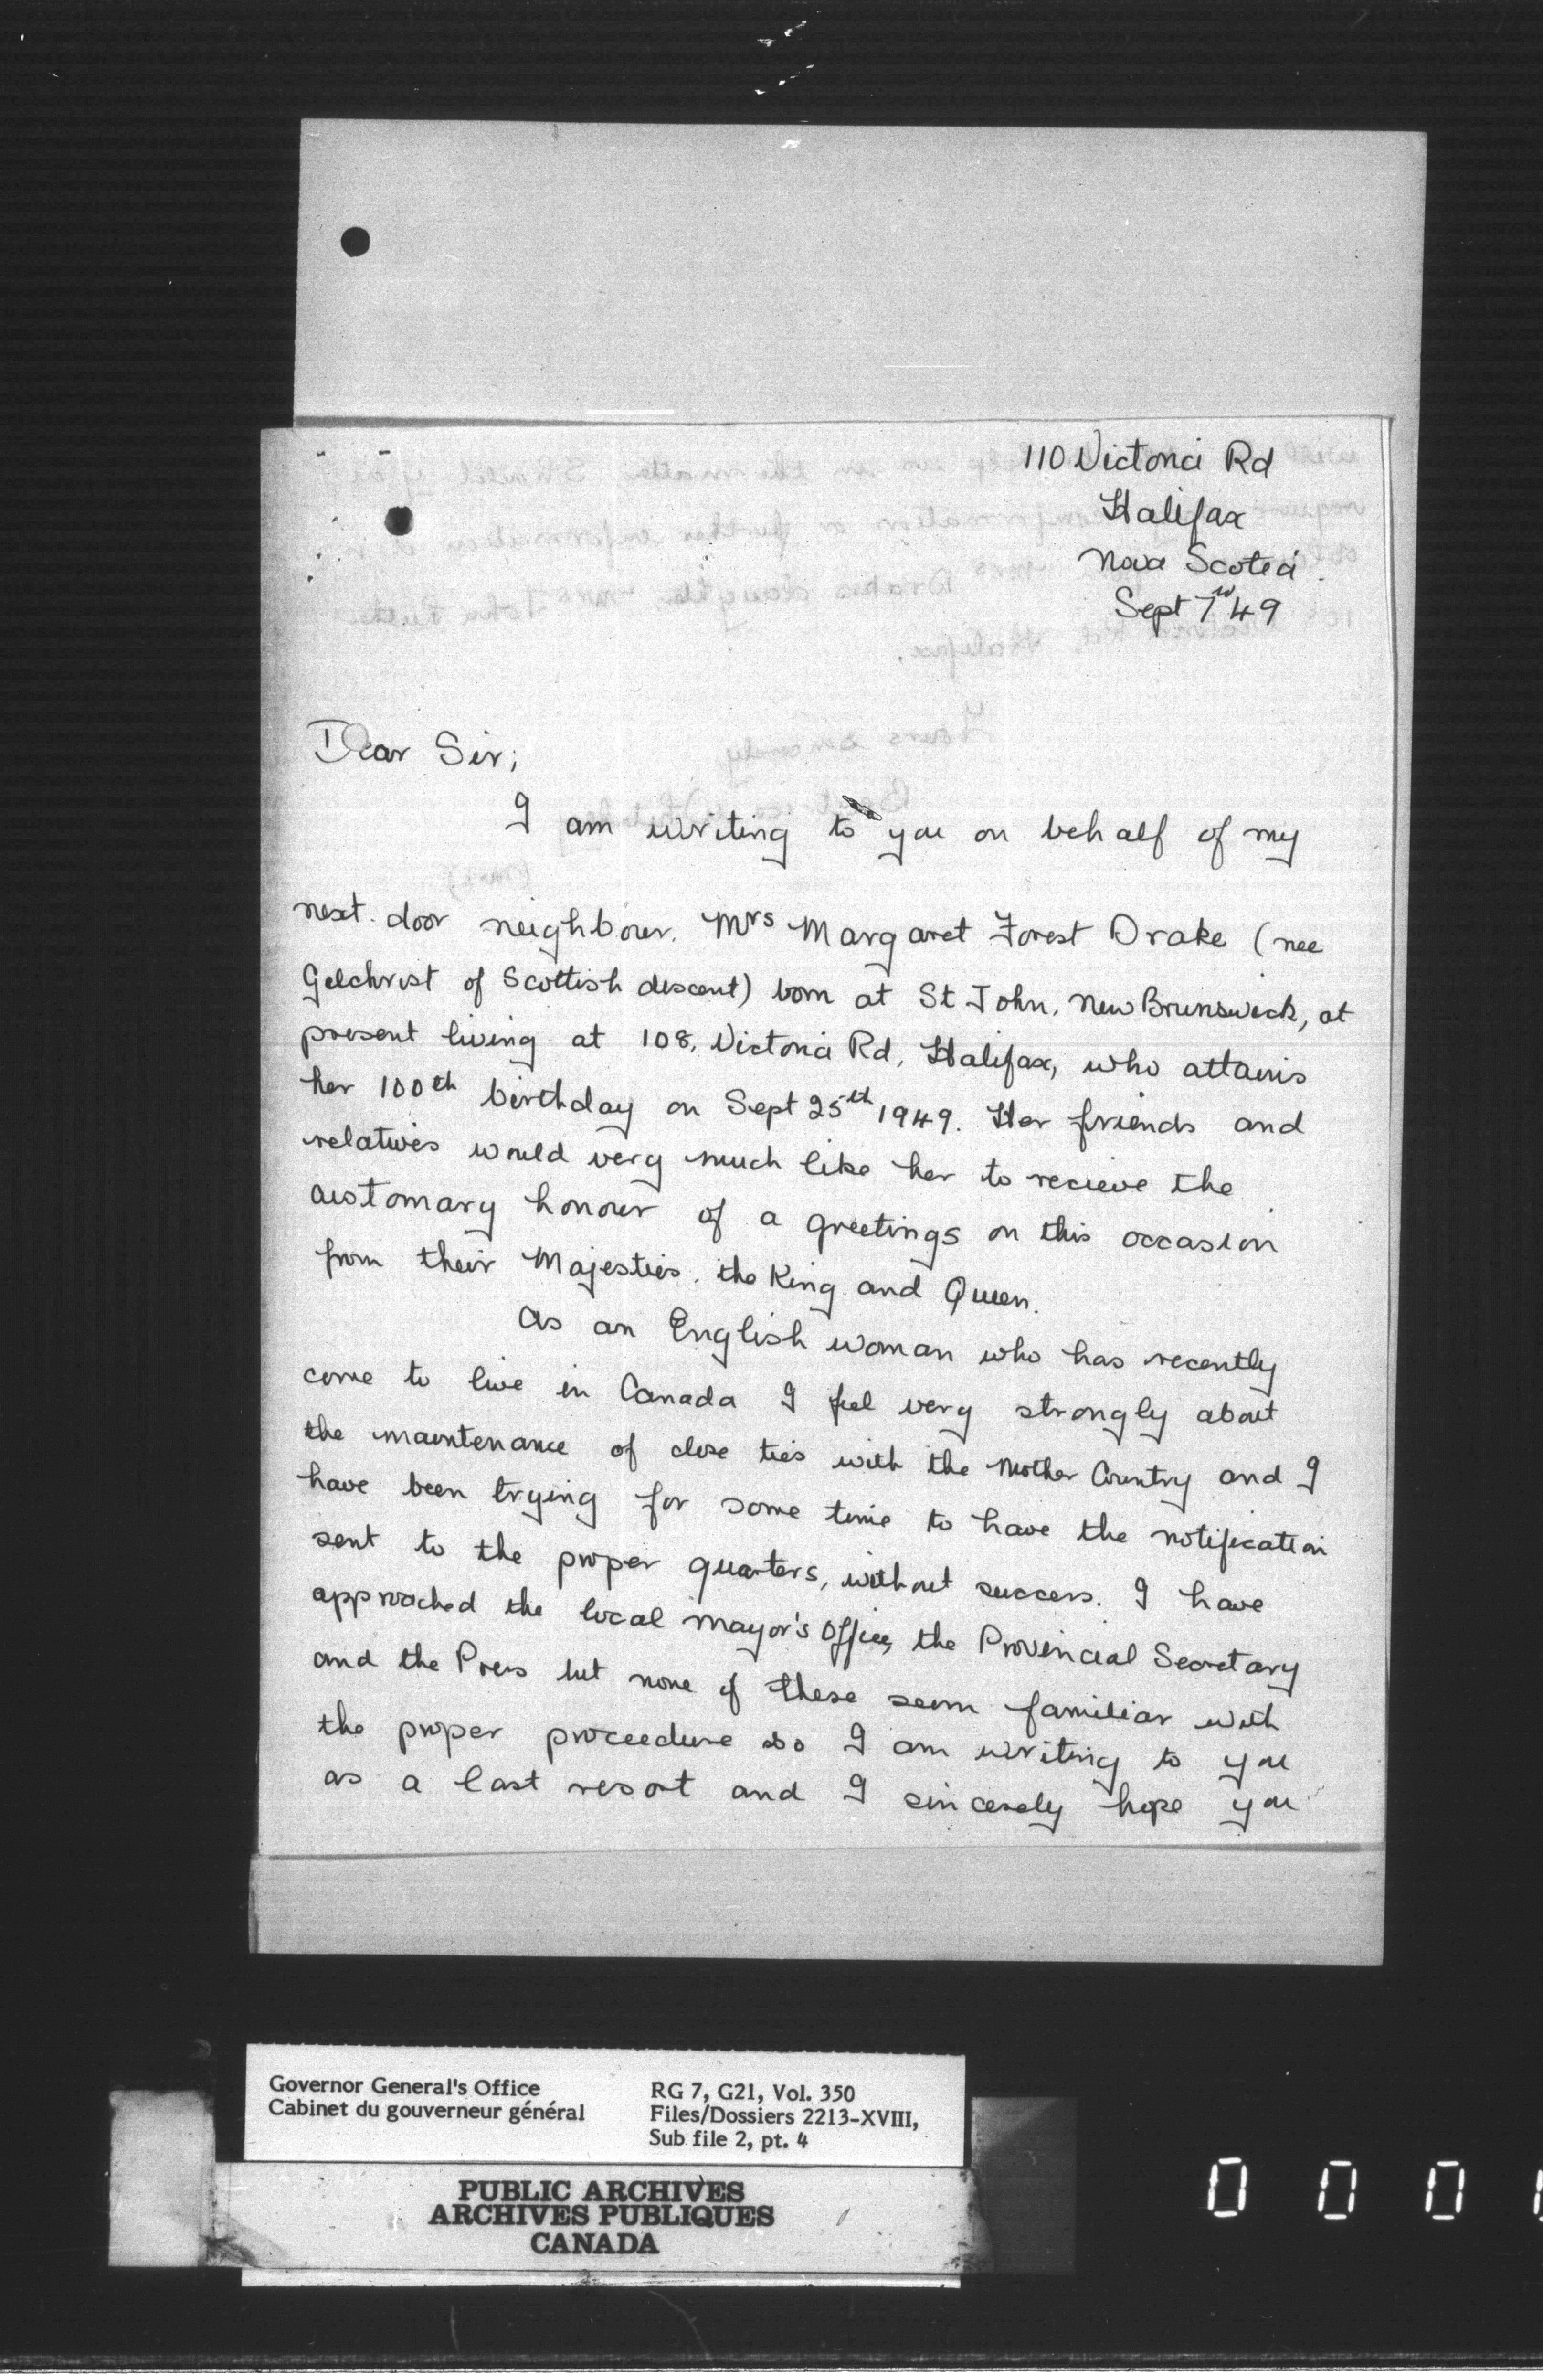 110 Victoria Rd
Halifax
Nova Scotia.
Sept 7th 49
Dear Sir;
I am writing to you on behalf of my
next door neighbour. Mrs Margaret Forest Drake (nee
Gilchrist of Scottish descent) born at St John, New Brunswick, at
present living at 108, Victoria Rd, Halifax, who attains
her 100th birthday on Sept 25th 1949. Her friends and
relatives would very much like her to recieve the
customary honour of a greetings on this occasion
from their Majesties, the King and Queen.
As an English woman who has recently
come to live in Canada I feel very strongly about
the maintenance of close ties with the Mother Country and I
have been trying for some time to have the notification
sent to the proper quarters, without success. I have
approached the local Mayor's Office, the Provincial Secretary
and the Press but none of these seem familiar with
the proper proceedure so I am writing to you
as a last resort and I sincerely hope you
Governor General's Office
Cabinet du gouverneur général
RG 7, G21, Vol. 350
Files/Dossiers 2213-XVIII,
Sub file 2, pt. 4
PUBLIC ARCHIVES
ARCHIVES PUBLIQUES
CANADA
0 0 0